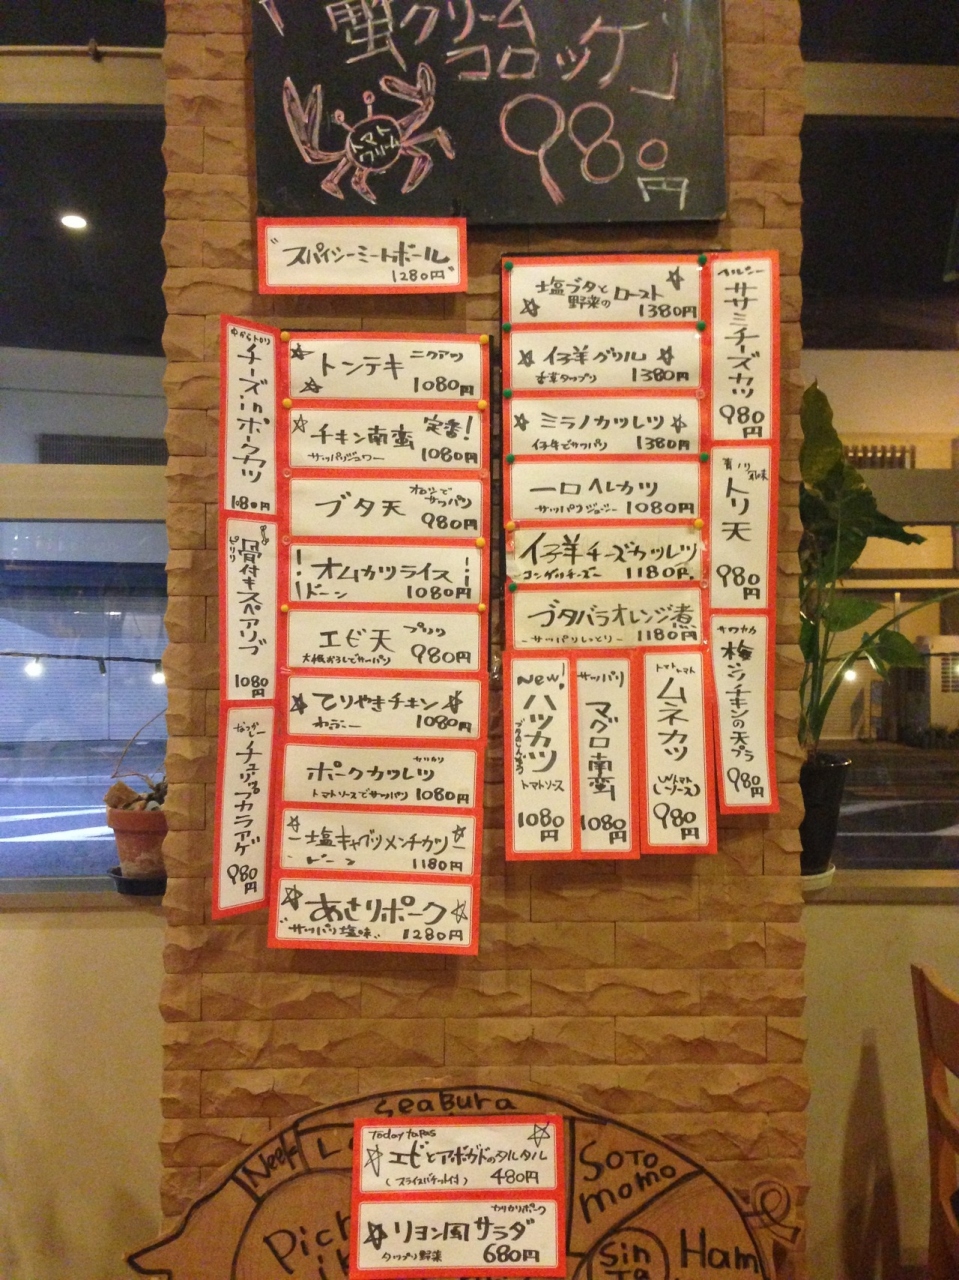 「蟹クリーム
コロッケ」
980
円
トマト
クリーム
"スパイシーミートボール"
1280円
チーズinポークカツ
1080円
骨付キスペアリブ
ピリリ
1080円
チュリップカラアゲ
980円
☆ トンテキ ニクアツ
☆ 1080円
☆ チキン南蛮 定番!
1080円
ブタ天 サッパリ
980円
!オムカツライス!
ドーン 1080円
エビ天 プリプリ
大根おろしでサッパリ 980円
☆てりやきチキン☆
1080円
ポークカツレツ
トマトソースでサッパリ 1080円
塩キャベツメンチカツ
1180円
☆あさりポーク☆
"サッパリ塩味" 1280円
塩ブタと
野菜のロースト
☆ 1380円
☆ 仔羊グリル ☆
1380円
☆ ミラノカツレツ ☆
仔牛でサッパリ 1380円
一口ヘレカツ
1080円
仔羊チーズカツレツ
1180円
ブタバラオレンジ煮
-サッパリしっとり- 1180円
ヘルシー
ササミチーズカツ
980円
トリ天
980円
梅シソチキンの天プラ
980円
New!
ハツカツ
トマトソース
1080円
サッパリ
マグロ南蛮
1080円
トマトトマト
ムネカツ
980円
SeaBura
Neek
Soto
momo
Today tapas
☆エビとアボカドのタルタル
480円
カリカリポーク
☆リヨン風サラダ
タップリ野菜 680円
Sin
Ta
Ham